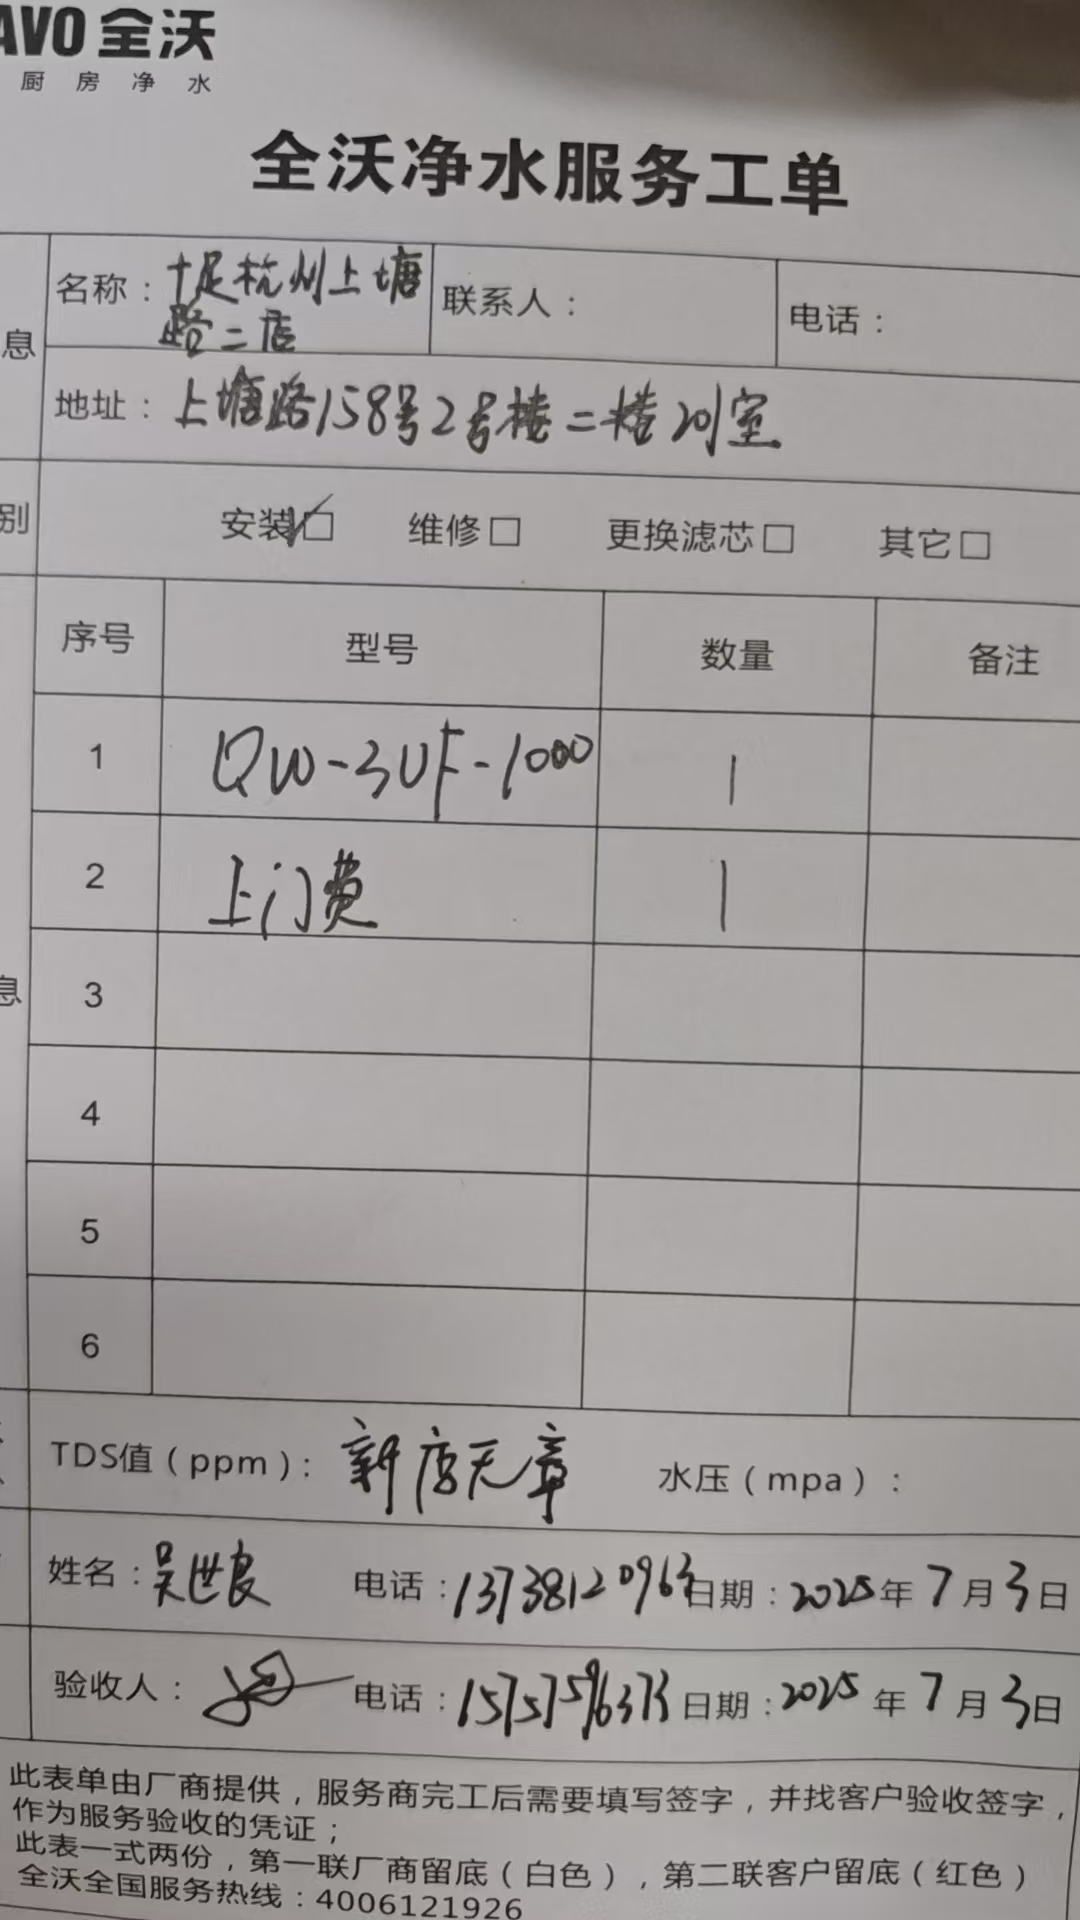 AVO 全沃
厨房净水
全沃净水服务工单
息
名称：十足杭州上塘路二店 联系人： 电话：
地址：上塘路158号2号楼二楼201室
别 安装☑ 维修□ 更换滤芯□ 其它□
序号 型号 数量 备注
1 QW-3UF-1000 1
2 上门费 1
息
3
4
5
6
TDS值（ppm）：新店无章 水压（mpa）：
姓名：吴世良 电话：13738120963 日期：2025年7月3日
验收人： 电话：15757596373 日期：2025年7月3日
此表单由厂商提供，服务商完工后需要填写签字，并找客户验收签字，
作为服务验收的凭证；
此表一式两份，第一联厂商留底（白色），第二联客户留底（红色）
全沃全国服务热线：4006121926